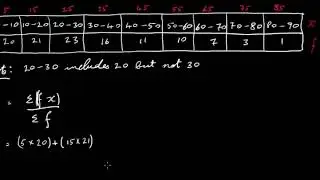 5 15 25 35 45 55 65 75 85
-10 10-20 20-30 30-40 40-50 50-60 60-70 70-80 80-90 x
20 21 23 16 11 10 7 3 1 f
: 20-30 includes 20 but not 30
= Σ(f x)
Σ f
= (5×20)+(15×21)